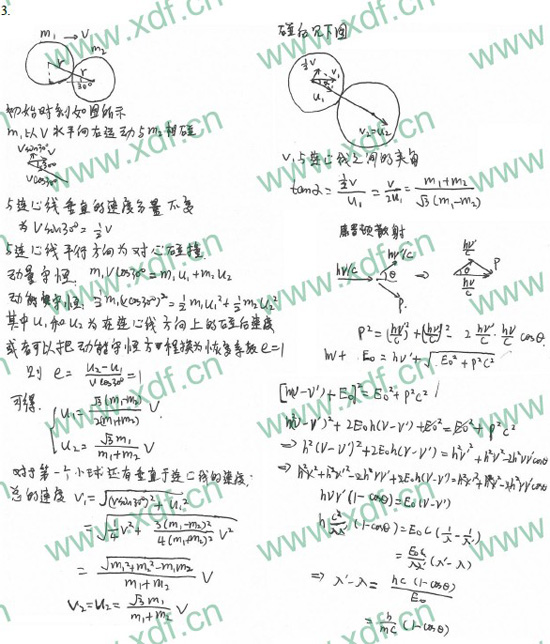 3.
m₁ → V
m₂
r
r
30°
初始时刻如图所示
m₁以V水平向右运动与m₂相碰
Vsin30°
30°
Vcos30°
与连心线垂直的速度分量不变
为 Vsin30° = ½V
与连心线平行方向为对心碰撞
动量守恒: m₁Vcos30° = m₁u₁ + m₂u₂
动能守恒: ½m₁(Vcos30°)² = ½m₁u₁² + ½m₂u₂²
其中u₁和u₂为在连心线方向上的碰后速度
或者可以把动能守恒方程换为恢复系数e=1
则 e = (u₂-u₁)/(Vcos30°) = 1
可得:
u₁ = √3(m₁-m₂)/2(m₁+m₂) V
u₂ = √3m₁/(m₁+m₂) V
对于第一个小球还有垂直于连心线的速度,
总的速度 V₁ = √((Vsin30°)² + u₁²)
= √(¼V² + 3(m₁-m₂)²/4(m₁+m₂)² V²)
= √(m₁²+m₂²-m₁m₂)/(m₁+m₂) V
V₂ = u₂ = √3m₁/(m₁+m₂) V
碰后见下图
½V
V₁
u₁
V₂=u₂
V₁与连心线之间的夹角
tanα = ½V/u₁ = V/2u₁ = (m₁+m₂)/√3(m₁-m₂)
康普顿散射
hν/c
hν'/c
θ
P
⇒
hν'/c
θ
hν/c
P
P² = (hν/c)² + (hν'/c)² - 2 hν/c · hν'/c cosθ
hν + E₀ = hν' + √(E₀²+P²c²)
[h(ν-ν')+E₀]² = E₀²+P²c²
h²(ν-ν')² + 2E₀h(ν-ν') + E₀² = E₀²+P²c²
⇒ h²(ν-ν')² + 2E₀h(ν-ν') = h²ν² + h²ν'² - 2h²νν'cosθ
⇒ h²ν² + h²ν'² - 2h²νν' + 2E₀h(ν-ν') = h²ν² + h²ν'² - 2h²νν'cosθ
hνν'(1-cosθ) = E₀(ν-ν')
h c²/λλ' (1-cosθ) = E₀c(1/λ - 1/λ')
= E₀c/λλ' (λ'-λ)
⇒ λ'-λ = hc(1-cosθ)/E₀
= h/mc (1-cosθ)
www.xdf.cn